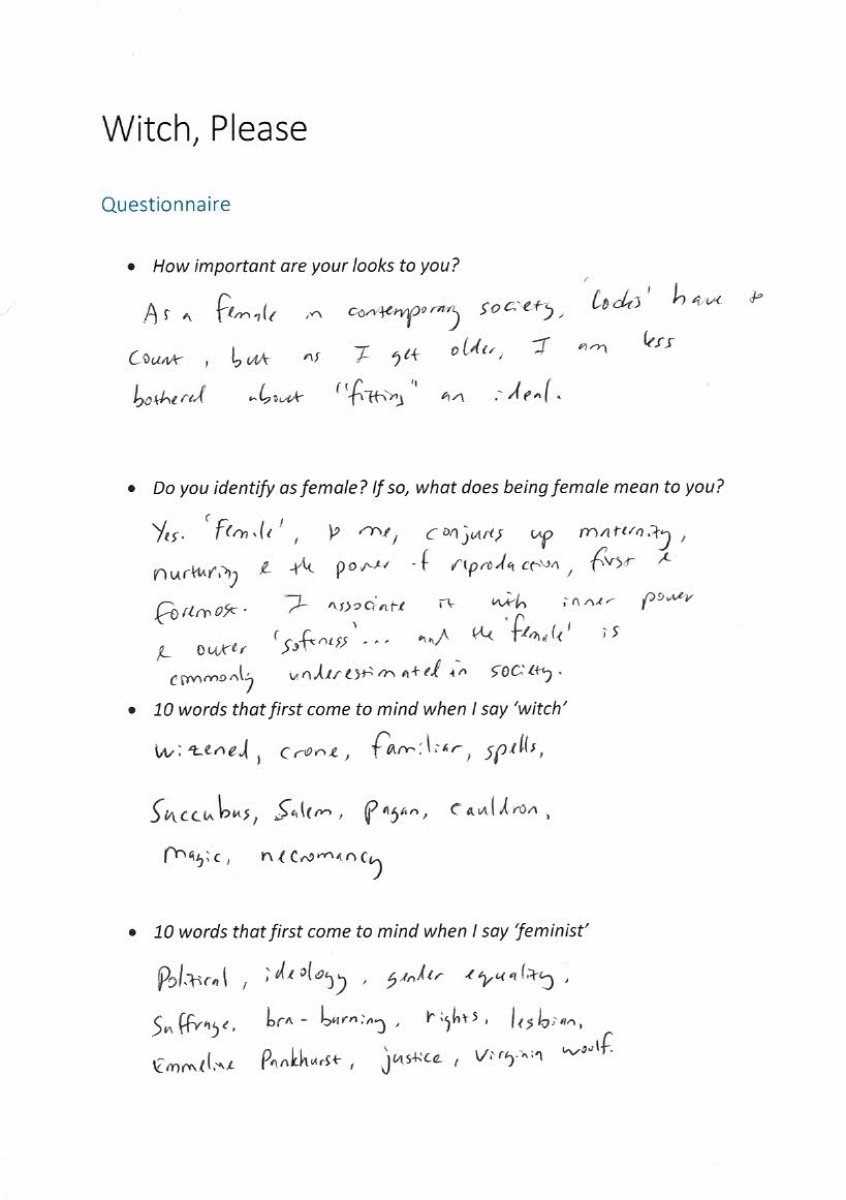 Witch, Please
Questionnaire
• How important are your looks to you?
As a female in contemporary society, 'looks' have to
count, but as I get older, I am less
bothered about "fitting" an ideal.
• Do you identify as female? If so, what does being female mean to you?
Yes. 'Female', to me, conjures up maternity,
nurturing & the power of reproduction, first &
foremost. I associate it with inner power
& outer 'softness'... and the 'female' is
commonly underestimated in society.
• 10 words that first come to mind when I say 'witch'
wizened, crone, familiar, spells,
Succubus, Salem, pagan, cauldron,
magic, necromancy
• 10 words that first come to mind when I say 'feminist'
Political, ideology, gender equality,
Suffrage, bra-burning, rights, lesbian,
Emmeline Pankhurst, justice, Virginia Woolf.